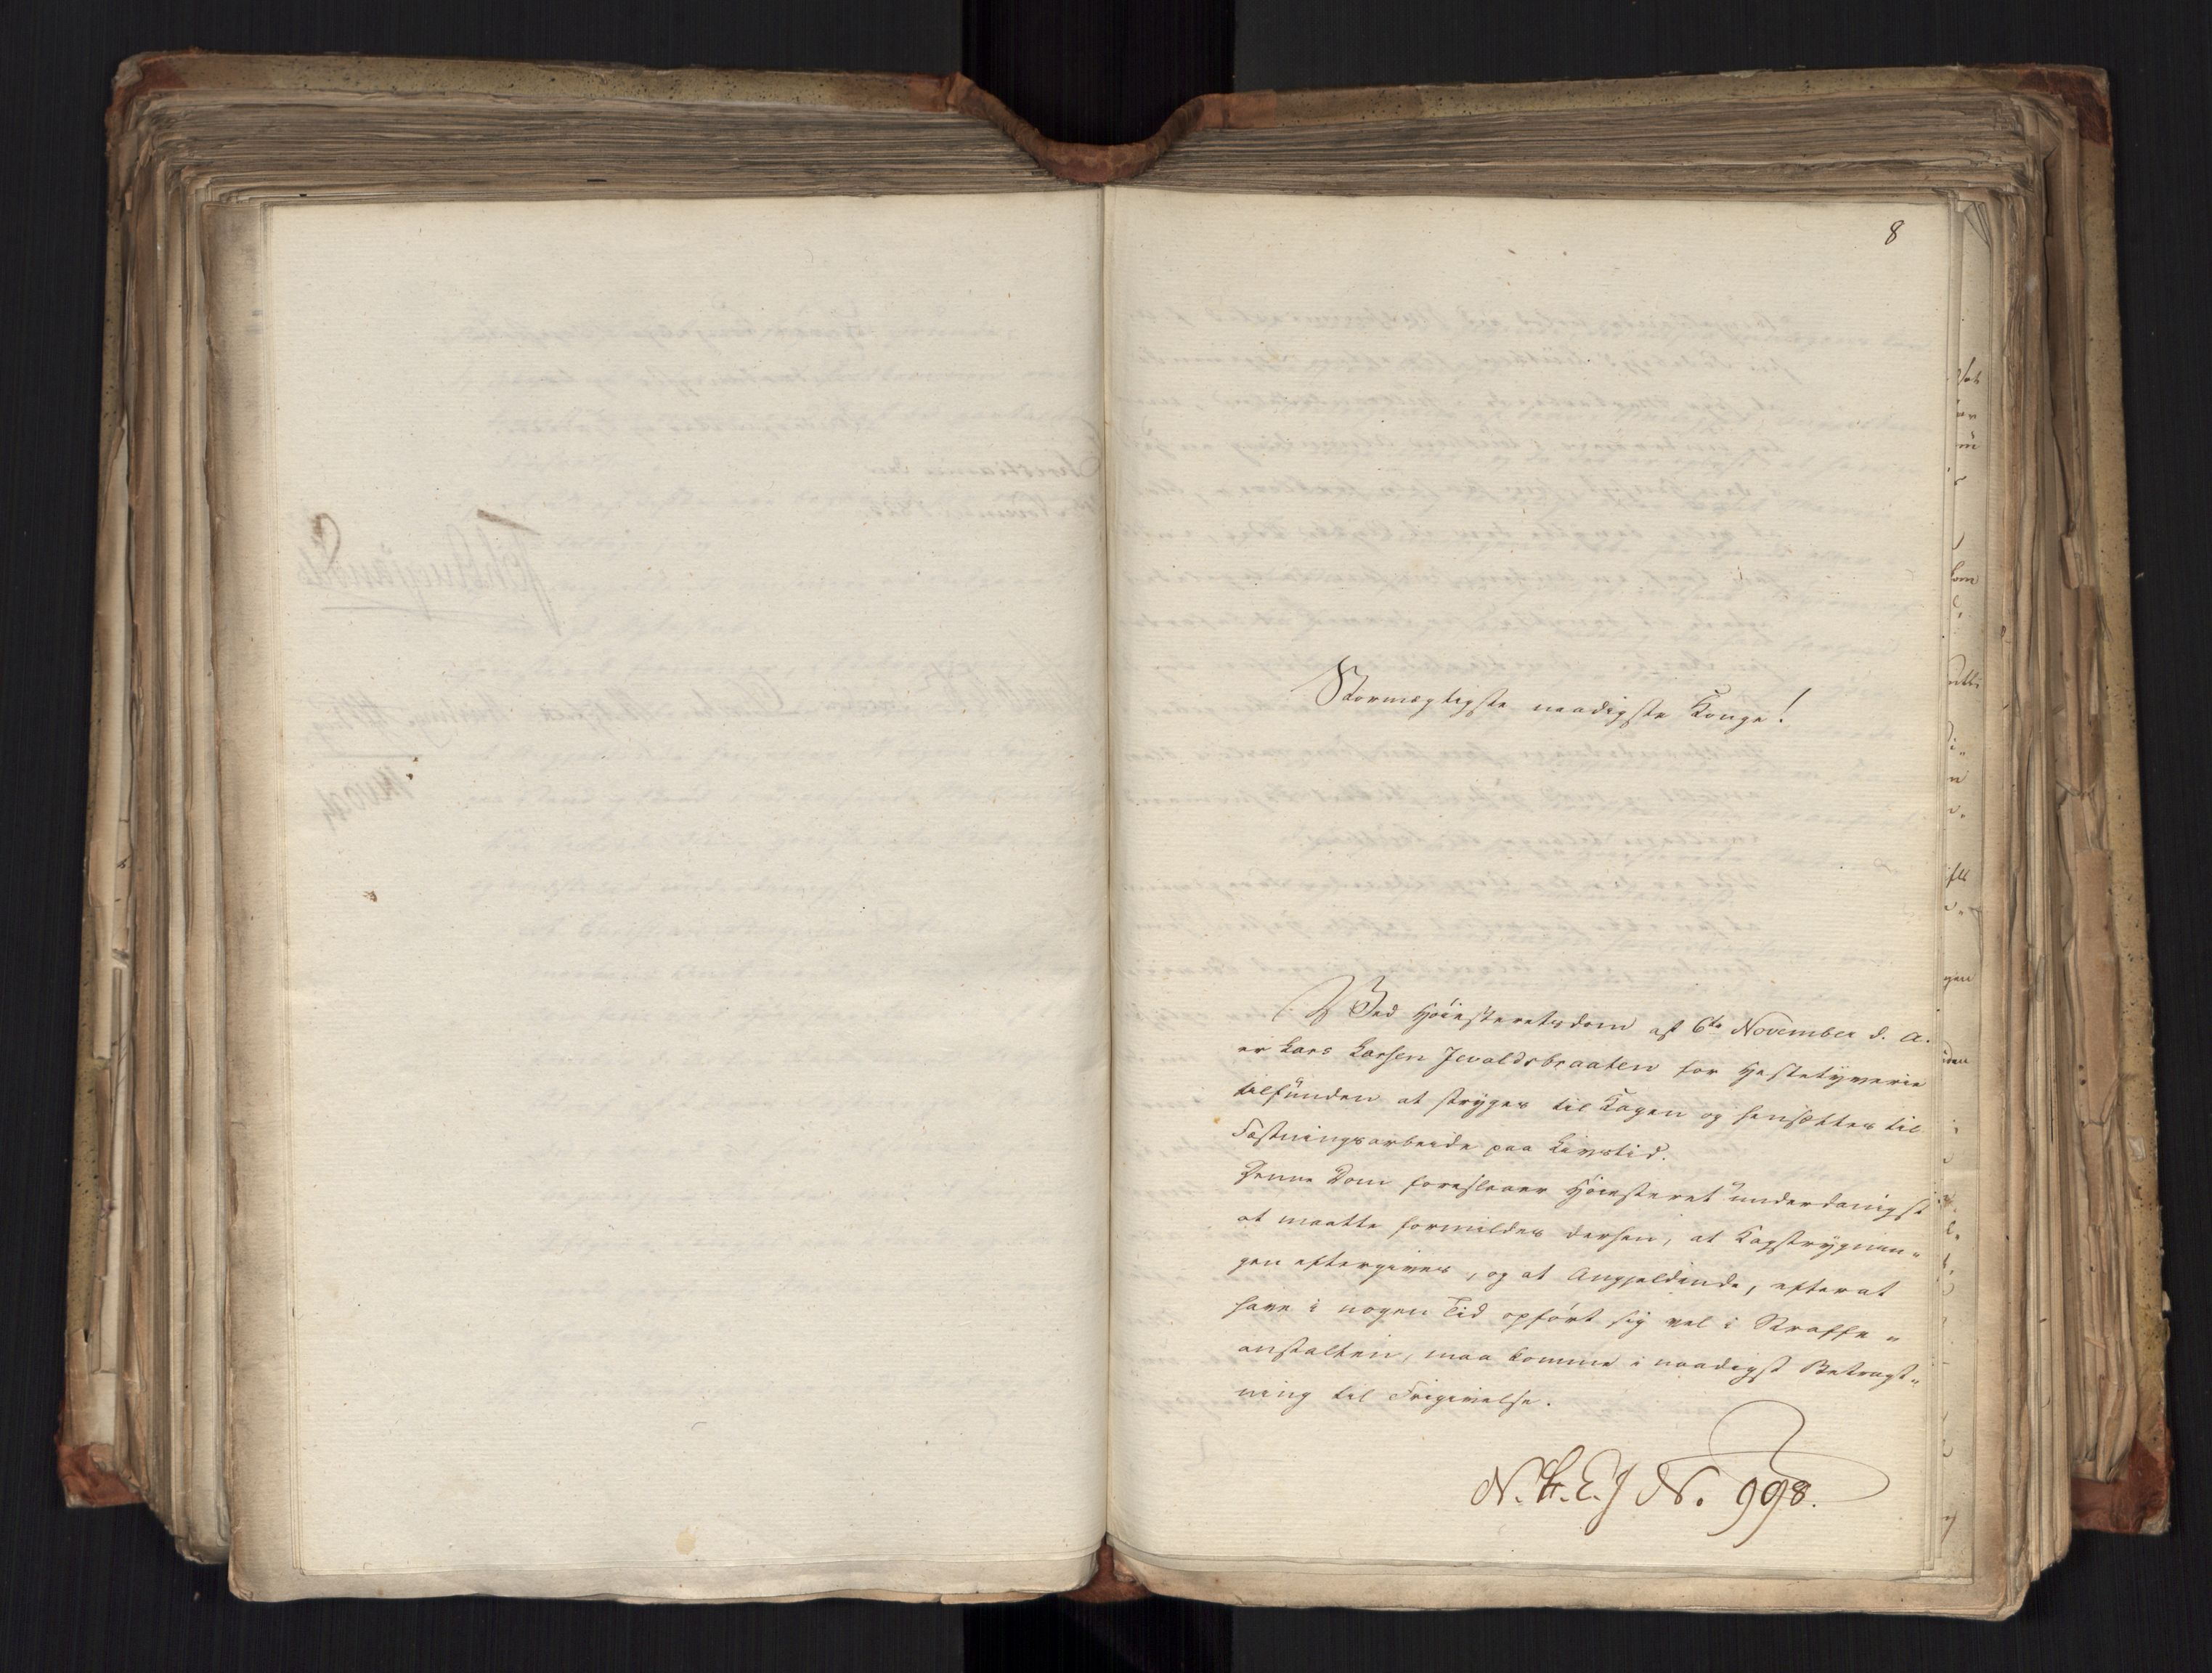 8
Stormægtigste naadigste Konge!
Ved Høiesteretsdom af 6te November d. A.
er Lars Larsen Jevaldsbraaten for Hestetyverie
tilfunden at stryges til Kagen og hensættes til
Fæstningsarbeide paa Livstid.
Denne Dom foreslaaer Høiesteret underdanigst
at maatte formildes derhen, at Kagstrygnin„
gen eftergives, og at Angjeldende, efterat
have i nogen Tid opført sig vel i Straffe„
anstalten, maa komme i naadigst Betragt„
ning til Frigivelse.
N. H. C. J No. 998.